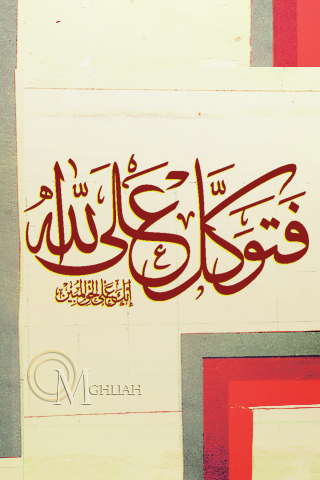 فَتَوَكَّلْ عَلَى اللَّهِ
إنك على الحق المبين
MGHLIAH